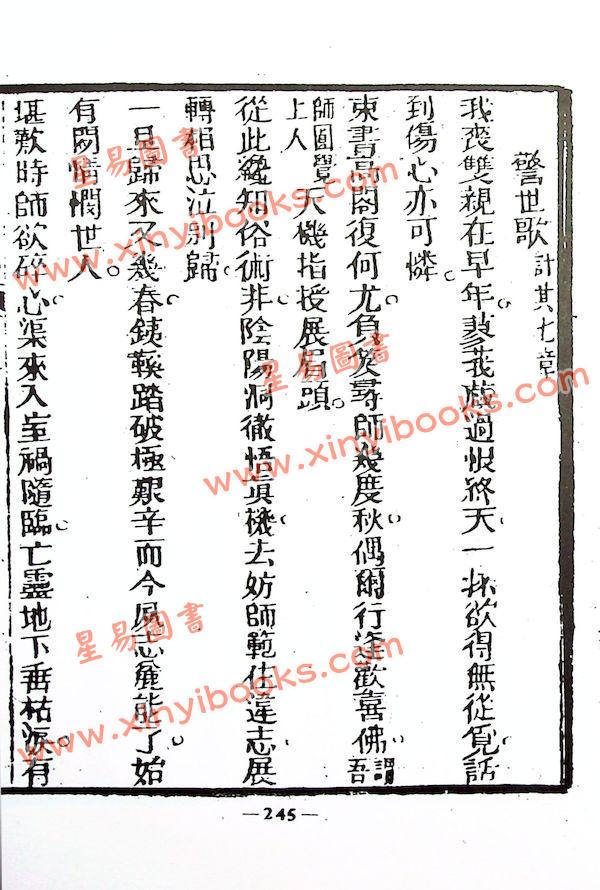 警世歌 計其七章
我喪雙親在早年。蓼莪過恨終天。一抔欲得無從覓。話
到傷心亦可憐。
束書高閣復何尤。負笈尋師幾度秋。偶爾行逢歡喜佛。謂吾
師圓覺上人 天機指授展眉頭。
從此纔知俗術非。陰陽洞徹悟真機。去妨師範仕違志。展
轉相思泣別歸。
一旦歸來又幾春。鉄鞋踏破極艱辛。而今夙志能了。始
有閑情憫世人。
堪歎時師欲碎心。渠來入室禍隨臨。亡靈地下垂枯淚。有
—245—
星易圖書
www.xinyibooks.com
星易圖書
www.xinyibooks.com
星易圖書
www.xinyibooks.com